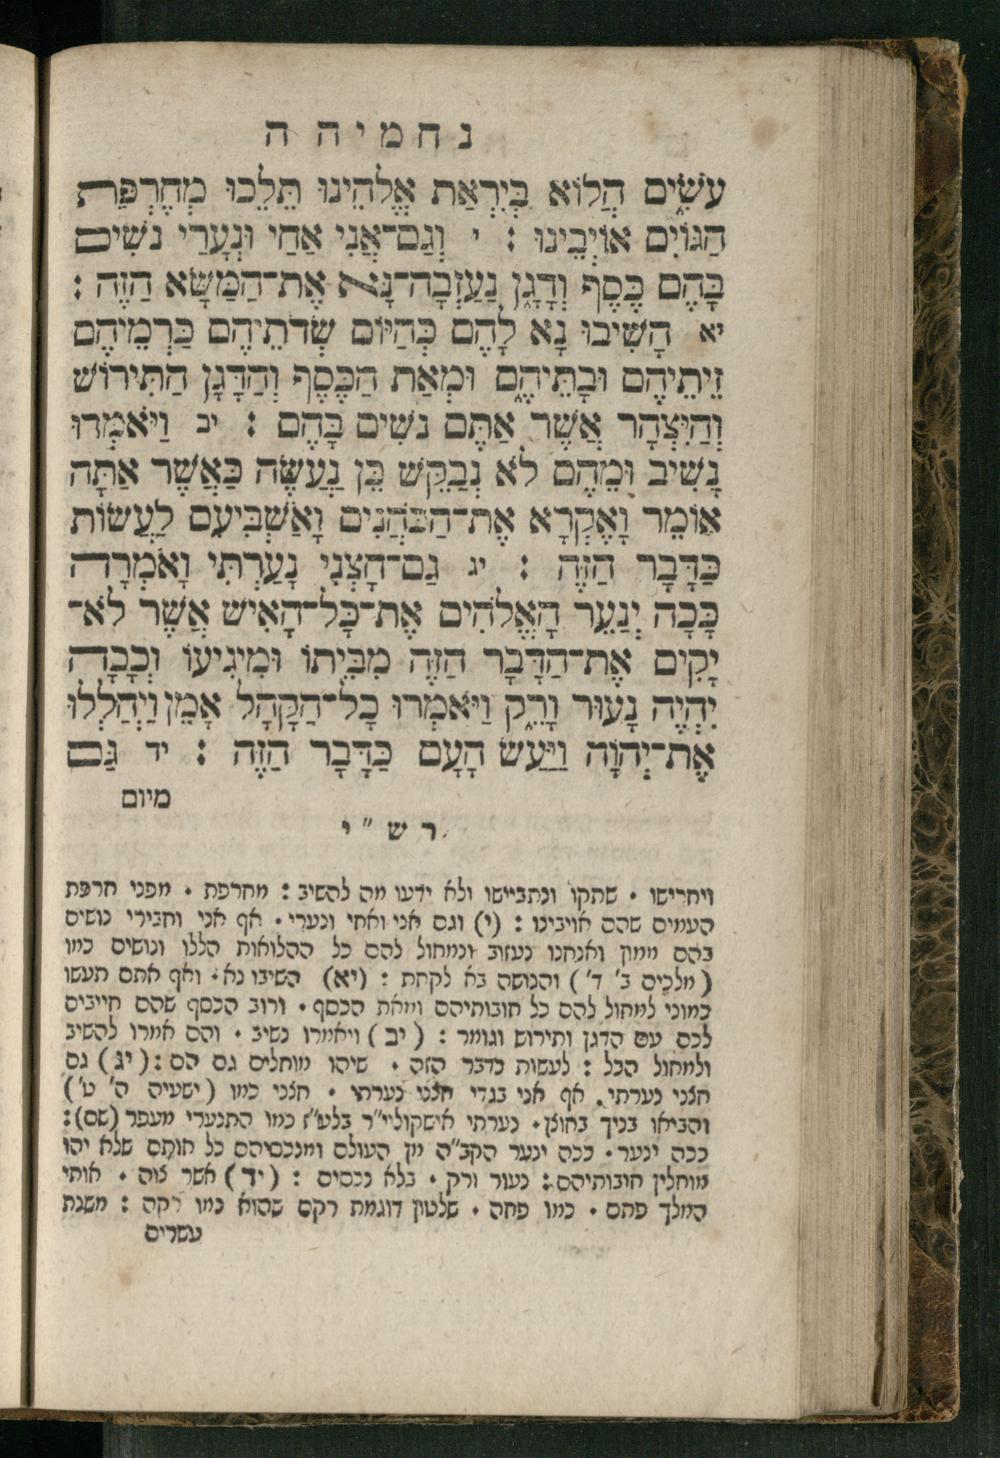 נחמיה ה
עֹשִׂים הֲלוֹא בְּיִרְאַת אֱלֹהֵינוּ תֵּלֵכוּ מֵחֶרְפַּת
הַגּוֹיִם אוֹיְבֵינוּ : י וְגַם־אֲנִי אַחַי וּנְעָרַי נֹשִׁים
בָּהֶם כֶּסֶף וְדָגָן נַעַזְבָה־נָּא אֶת־הַמַּשָּׁא הַזֶּה :
יא הָשִׁיבוּ נָא לָהֶם כְּהַיּוֹם שְׂדֹתֵיהֶם כַּרְמֵיהֶם
זֵיתֵיהֶם וּבָתֵּיהֶם וּמְאַת הַכֶּסֶף וְהַדָּגָן הַתִּירוֹשׁ
וְהַיִּצְהָר אֲשֶׁר אַתֶּם נֹשִׁים בָּהֶם : יב וַיֹּאמְרוּ
נָשִׁיב וּמֵהֶם לֹא נְבַקֵּשׁ כֵּן נַעֲשֶׂה כַּאֲשֶׁר אַתָּה
אוֹמֵר וָאֶקְרָא אֶת־הַכֹּהֲנִים וָאַשְׁבִּיעֵם לַעֲשׂוֹת
כַּדָּבָר הַזֶּה : יג גַּם־חָצְנִי נָעַרְתִּי וָאֹמְרָה
כָּכָה יְנַעֵר הָאֱלֹהִים אֶת־כָּל־הָאִישׁ אֲשֶׁר לֹא־
יָקִים אֶת־הַדָּבָר הַזֶּה מִבֵּיתוֹ וּמִיגִיעוֹ וְכָכָה
יִהְיֶה נָעוּר וָרֵק וַיֹּאמְרוּ כָל־הַקָּהָל אָמֵן וַיְהַלְלוּ
אֶת־יְהוָֹה וַיַּעַשׂ הָעָם כַּדָּבָר הַזֶּה : יד גַּם
מיום
רש"י
ויחרישו . שתקו ונתביישו ולא ידעו מה להשיב : מחרפת . מפני חרפת
העמים שהם אויבינו : (י) וגם אני ואחי ונערי . אף אני וחבירי נושים
בהם ממון ואנחנו נעזוב ונמחול להם כל ההלואות הללו ונושים כמו
(מלכים ב' ד') והנושה בא לקחת : (יא) השיבו נא . ואף אתם תעשו
כמוני למחול להם כל חובותיהם ומאת הכסף . ורוב הכסף שהם חייבים
לכם עם הדגן ותירוש וגומר : (יב) ויאמרו נשיב . והם אמרו להשיב
ולמחול הכל : לעשות כדבר הזה . שיהו מוחלים גם הם : (יג) גם
חצני נערתי . אף אני בגדי חצני נערתי . חצני כמו (ישעיה ה' ט')
והביאו בניך בחוצן . נערתי אישקוליי"ר בלע"ז כמו התנערי מעפר (שם) :
ככה ינער . ככה ינער הקב"ה מן העולם ומנכסיהם כל אותם שלא יהו
מוחלין חובותיהם : נעור ורק . בלא נכסים : (יד) אשר צוה . אותי
המלך פחם . כמו פחה . שלטון דוגמת רקם שהוא כמו רקה : משנת
עשרים